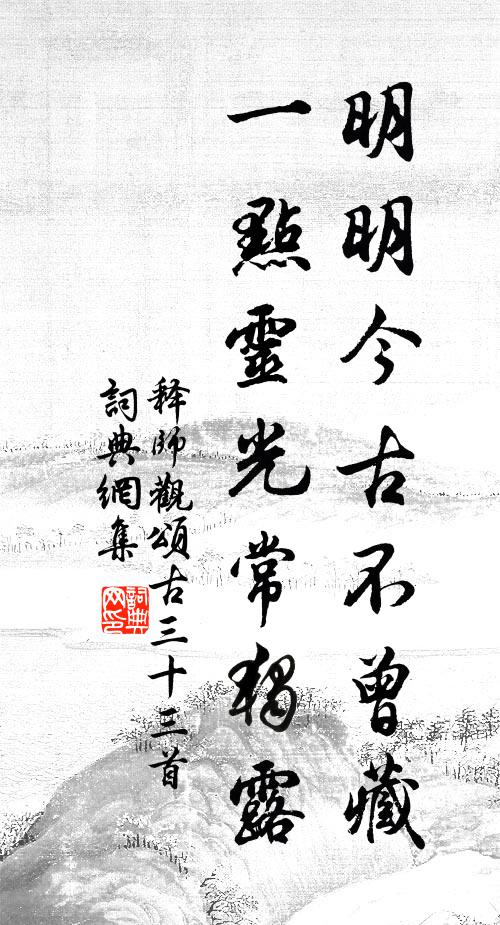 明明今古不曾藏
一點靈光常獨露
释師觀頌古三十三首
詞典網集
詞典
网印